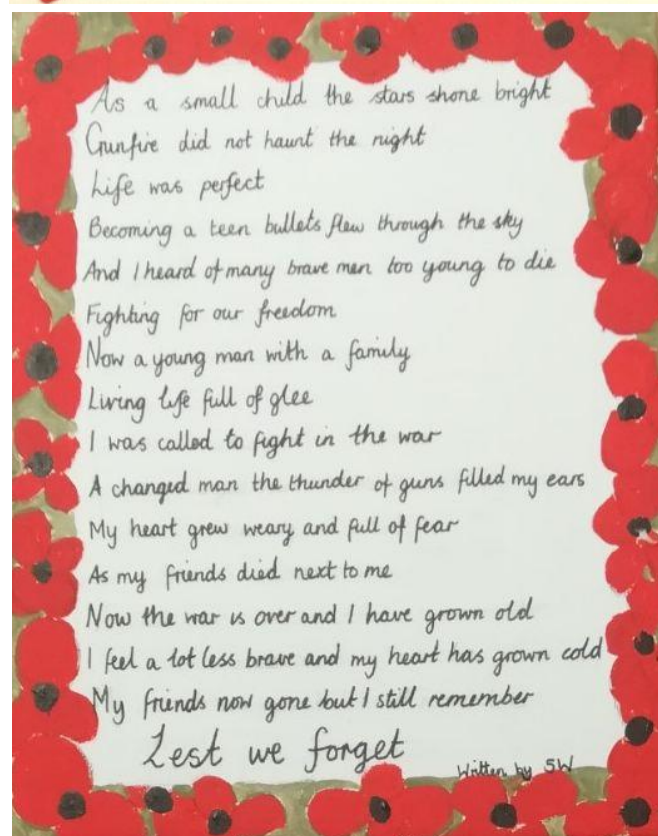 As a small child the stars shone bright
Gunfire did not haunt the night
Life was perfect
Becoming a teen bullets flew through the sky
And I heard of many brave men too young to die
Fighting for our freedom
Now a young man with a family
Living life full of glee
I was called to fight in the war
A changed man the thunder of guns filled my ears
My heart grew weary and full of fear
As my friends died next to me
Now the war is over and I have grown old
I feel a lot less brave and my heart has grown cold
My friends now gone but I still remember
Lest we forget
Written by 5W